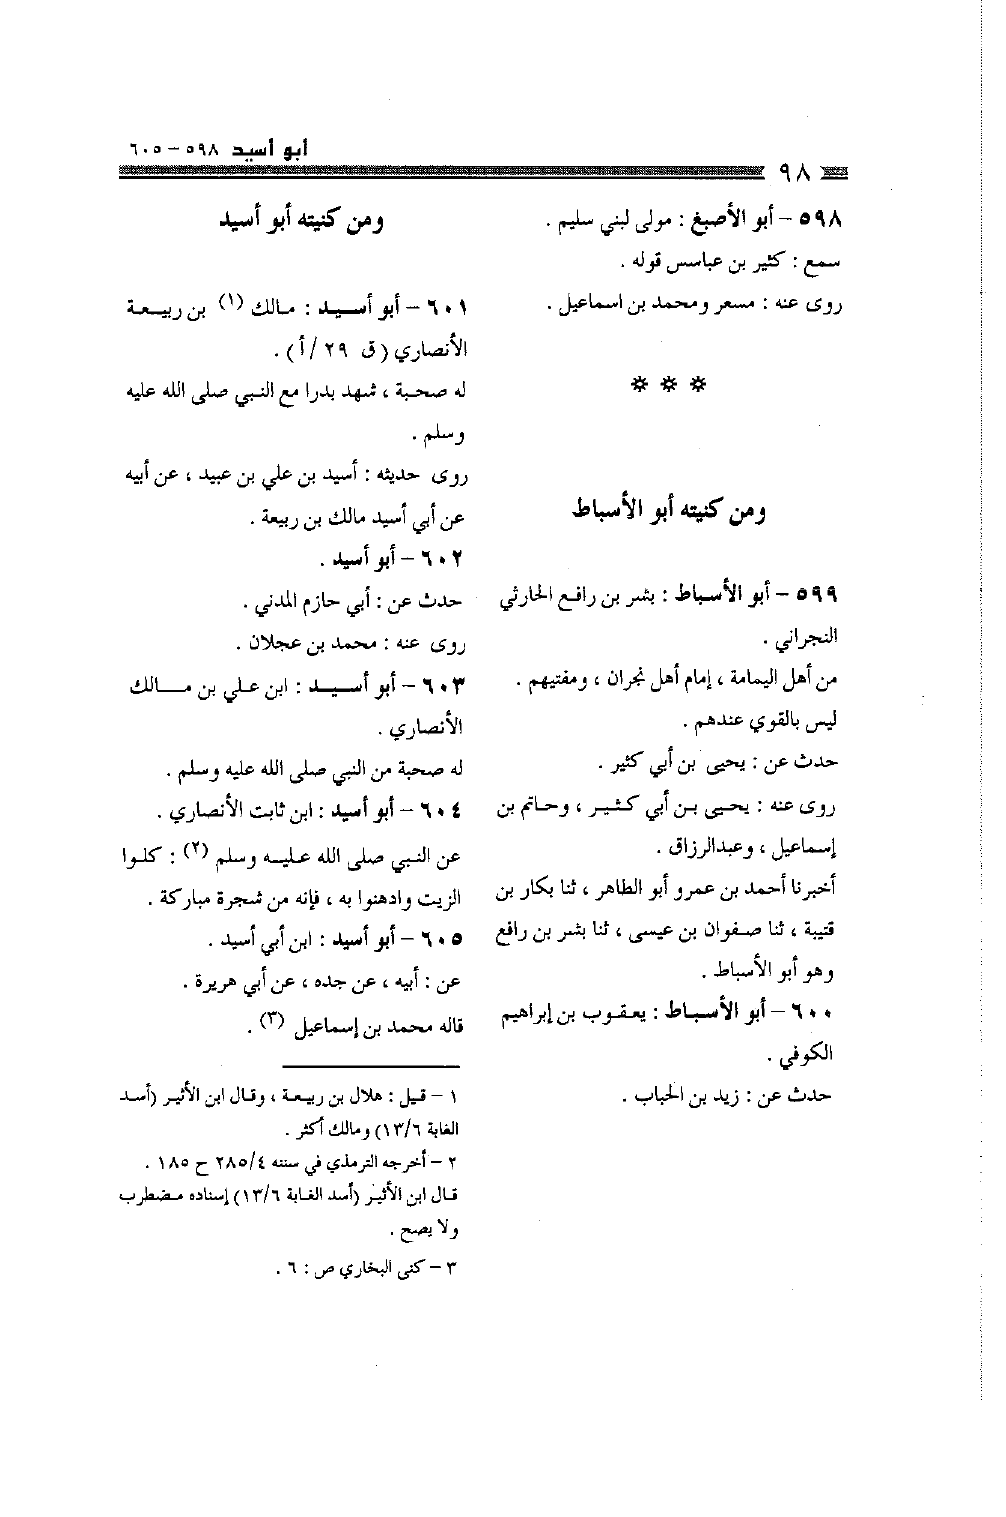 أبو أسيد ٥٩٨ - ٦٠٥
٩٨
٥٩٨ - أبو الأصبغ : مولى لبني سليم .
سمع : كثير بن عباسس قوله .
روى عنه : مسعر ومحمد بن اسماعيل .
* * *
ومن كنيته أبو الأسباط
٥٩٩ - أبو الأسباط : بشر بن رافع الحارثي
النجراني .
من أهل اليمامة ، إمام أهل نجران ، ومفتيهم .
ليس بالقوي عندهم .
حدث عن : يحيى بن أبي كثير .
روى عنه : يحيى بن أبي كثير ، وحاتم بن
إسماعيل ، وعبدالرزاق .
أخبرنا أحمد بن عمرو أبو الطاهر ، ثنا بكار بن
قتيبة ، ثنا صفوان بن عيسى ، ثنا بشر بن رافع
وهو أبو الأسباط .
٦٠٠ - أبو الأسباط : يعقوب بن إبراهيم
الكوفي .
حدث عن : زيد بن الحباب .
ومن كنيته أبو أسيد
٦٠١ - أبو أسيد : مالك (١) بن ربيعة
الأنصاري (ق ٢٩ /أ) .
له صحبة ، شهد بدرا مع النبي صلى الله عليه
وسلم .
روى حديثه : أسيد بن علي بن عبيد ، عن أبيه
عن أبي أسيد مالك بن ربيعة .
٦٠٢ - أبو أسيد .
حدث عن : أبي حازم المدني .
روى عنه : محمد بن عجلان .
٦٠٣ - أبو أسيد : ابن علي بن مالك
الأنصاري .
له صحبة من النبي صلى الله عليه وسلم .
٦٠٤ - أبو أسيد : ابن ثابت الأنصاري .
عن النبي صلى الله عليه وسلم (٢) : كلوا
الزيت وادهنوا به ، فإنه من شجرة مباركة .
٦٠٥ - أبو أسيد : ابن أبي أسيد .
عن : أبيه ، عن جده ، عن أبي هريرة .
قاله محمد بن إسماعيل (٣) .
١ - قيل : هلال بن ربيعة ، وقال ابن الأثير (أسد
الغابة ١٣/٦) ومالك أكثر .
٢ - أخرجه الترمذي في سننه ٢٨٥/٤ ح ١٨٥ .
قال ابن الأثير (أسد الغابة ١٣/٦) إسناده مضطرب
ولا يصح .
٣ - كنى البخاري ص : ٦ .